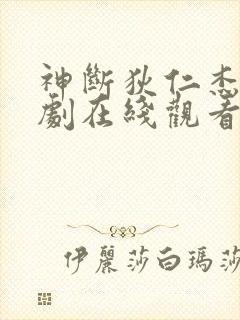 神斷狄仁杰
劇在綫觀看
伊麗莎白瑪莎